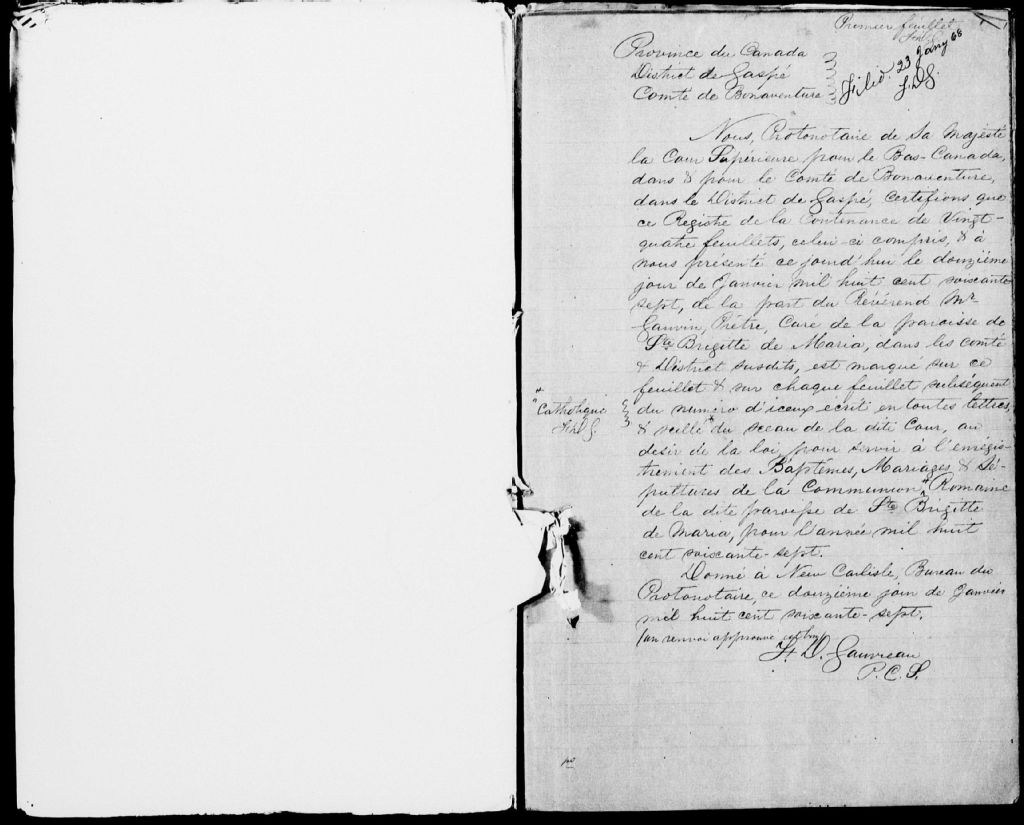 Premier feuillet
Province du Canada
District de Gaspé
Comté de Bonaventure
Filed. 23 Jany 68
Nous, Protonotaire de Sa Majesté
la Cour Supérieure pour le Bas-Canada,
dans & pour le Comté de Bonaventure,
dans le District de Gaspé, certifions que
ce Registre de la Contenance de Vingt-
quatre feuillets, celui-ci compris, & à
nous présenté ce jourd'hui le douzième
jour de Janvier mil huit cent soixante
sept, de la part du Révérend Mr
Gauvin, Prêtre, Curé de la paroisse de
Ste Brigitte de Maria, dans les comté
& District susdits, est marqué sur ce
feuillet & sur chaque feuillet subséquent
du numéro d'iceux écrit en toutes lettres,
& scellé du sceau de la dite Cour, au
desir de la loi pour servir à l'enrégis-
trement des Baptêmes, Mariages & Sé-
pultures de la Communion Romaine
de la dite paroisse de Ste Brigitte
de Maria, pour l'année mil huit
cent soixante-sept.
Donné à New Carlisle, Bureau du
Protonotaire, ce douzième jour de Janvier
mil huit cent soixante-sept.
(un renvoi approuvé est bon)
F. D. Gauvreau
P. C. S.
Catholique